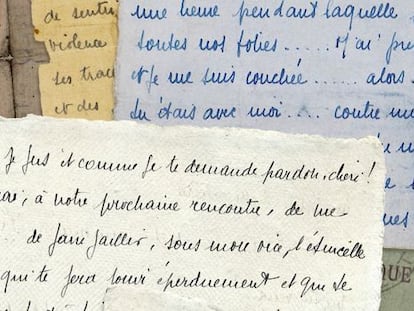 de sentir
violence
ses trac
et des
une heure pendant laquelle
toutes nos folies ..... J'ai pre
et je me suis couchée ..... alors.
tu étais avec moi .... contre m
je fus et comme je te demande pardon, chéri!
à notre prochaine rencontre, de me
de faire jaillir, sous mon l'étincelle
qui te fera jouir éperdument et qui se
ues
QUE